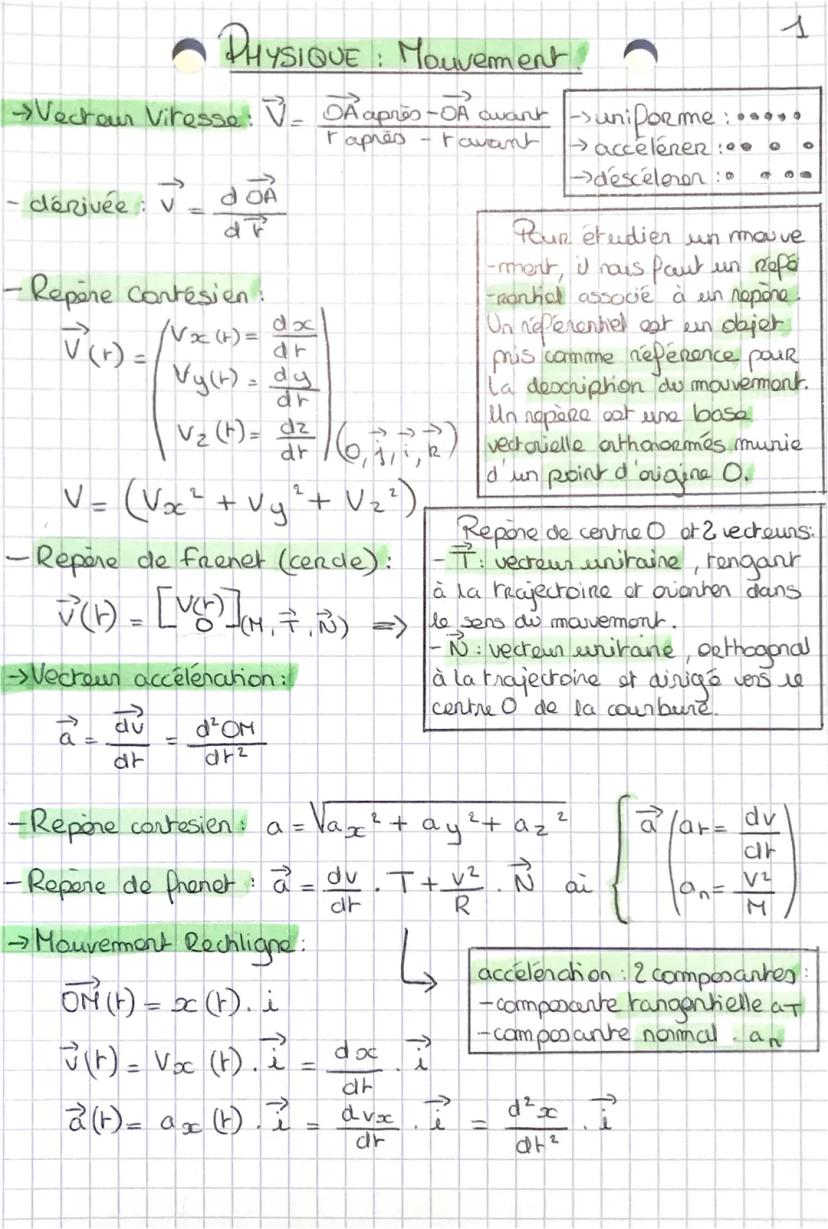 1
PHYSIQUE : Mouvement.
→Vecteur Vitesse: V⃗ = (OA⃗ après - OA⃗ avant) / (t après - t avant)
→uniforme : •••••
→ accélérer :•• • •
→déscélerer :• • ••
- dérivée : v⃗ = d OA⃗ / d t⃗
Pour étudier un mouve
-ment, il nous faut un réfé
-rentiel associé à un repère.
Un référentiel est un objet
pris comme référence pour
la description du mouvement.
Un repère est une base
vectorielle orthonormés munie
d'un point d'origine O.
- Repère Cartésien :
V⃗(t) = ( Vx(t) = dx/dt
Vy(t) = dy/dt
Vz(t) = dz/dt ) (O, j⃗, i⃗, k⃗)
V = (Vx² + Vy² + Vz²)
- Repère de Frenet (cercle) :
v⃗(t) = [V(t) 0] (M, T⃗, N⃗) ⇒
Repère de centre O et 2 vecteurs:
- T⃗ : vecteur unitaire, tengant
à la trajectoire et orienter dans
le sens du mouvement.
- N⃗ : vecteur unitaire, orthogonal
à la trajectoire et dirigé vers le
centre O de la courbure.
→Vecteur accélération :
a⃗ = dv⃗/dt = d²OM/dt²
- Repère cartesien : a = √(ax² + ay² + az²)
- Repère de frenet : a⃗ = dv/dt . T + v²/R . N⃗ où { a⃗ ( at = dv/dt
an = V²/M )
→ Mouvement Rectiligne :
accélération : 2 composantes :
- composante tangentielle aT
- composante normal . an
OM⃗(t) = x(t) . i
v⃗(t) = Vx (t) . i⃗ = dx/dt . i⃗
a⃗(t) = ax (t) . i⃗ = dvx/dt . i⃗ = d²x/dt² . i⃗